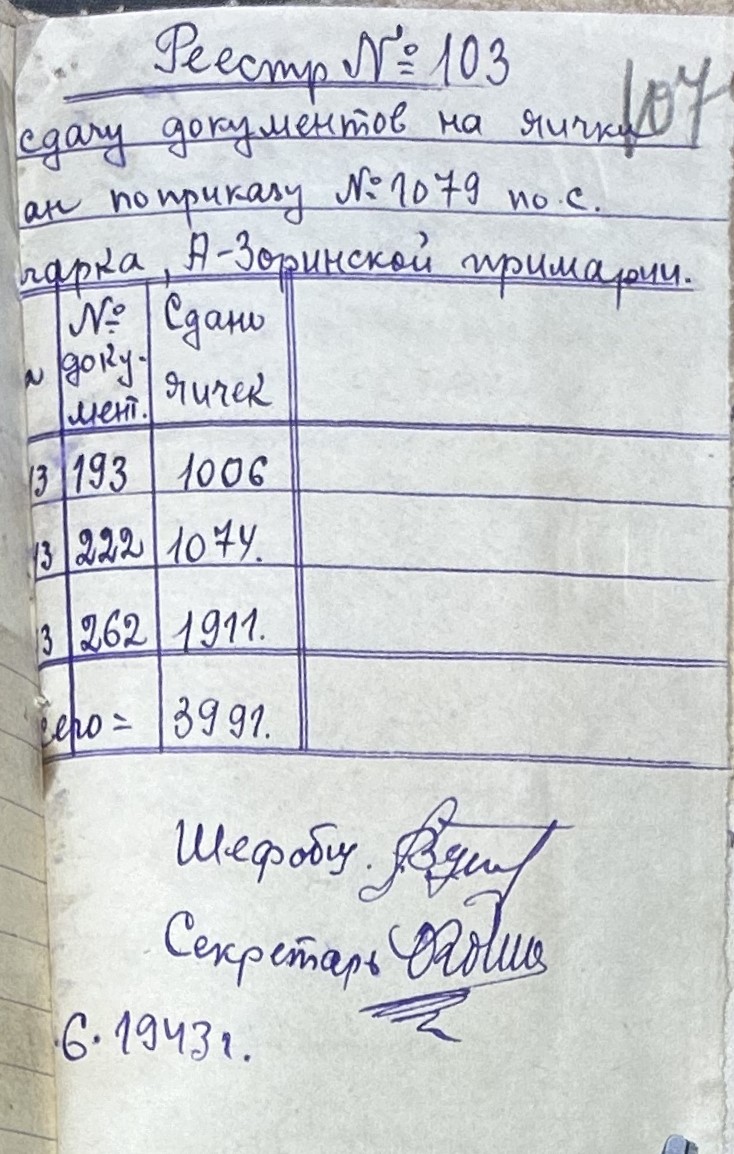 Реестр № 103
107
сдачу документов на яички
ан по приказу № 1079 по с.
чарка, А-Зоринской примарии.
№ доку-мент. Сдано яичек
13 193 1006
13 222 1074.
3 262 1911.
сего = 3991.
Шеф общ.
Секретарь
.6.1943 г.